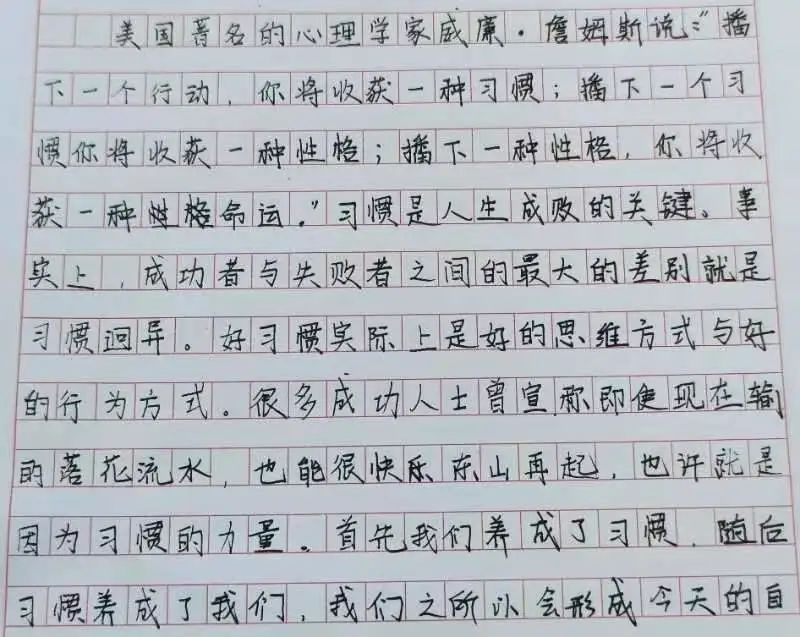 美国著名的心理学家威廉·詹姆斯说:"播
下一个行动,你将收获一种习惯;播下一个习
惯你将收获一种性格;播下一种性格,你将收
获一种性格命运."习惯是人生成败的关键。事
实上,成功者与失败者之间的最大的差别就是
习惯迥异。好习惯实际上是好的思维方式与好
的行为方式。很多成功人士曾宣称即使现在输
的落花流水,也能很快乐东山再起,也许就是
因为习惯的力量。首先我们养成了习惯,随后
习惯养成了我们,我们之所以会形成今天的自